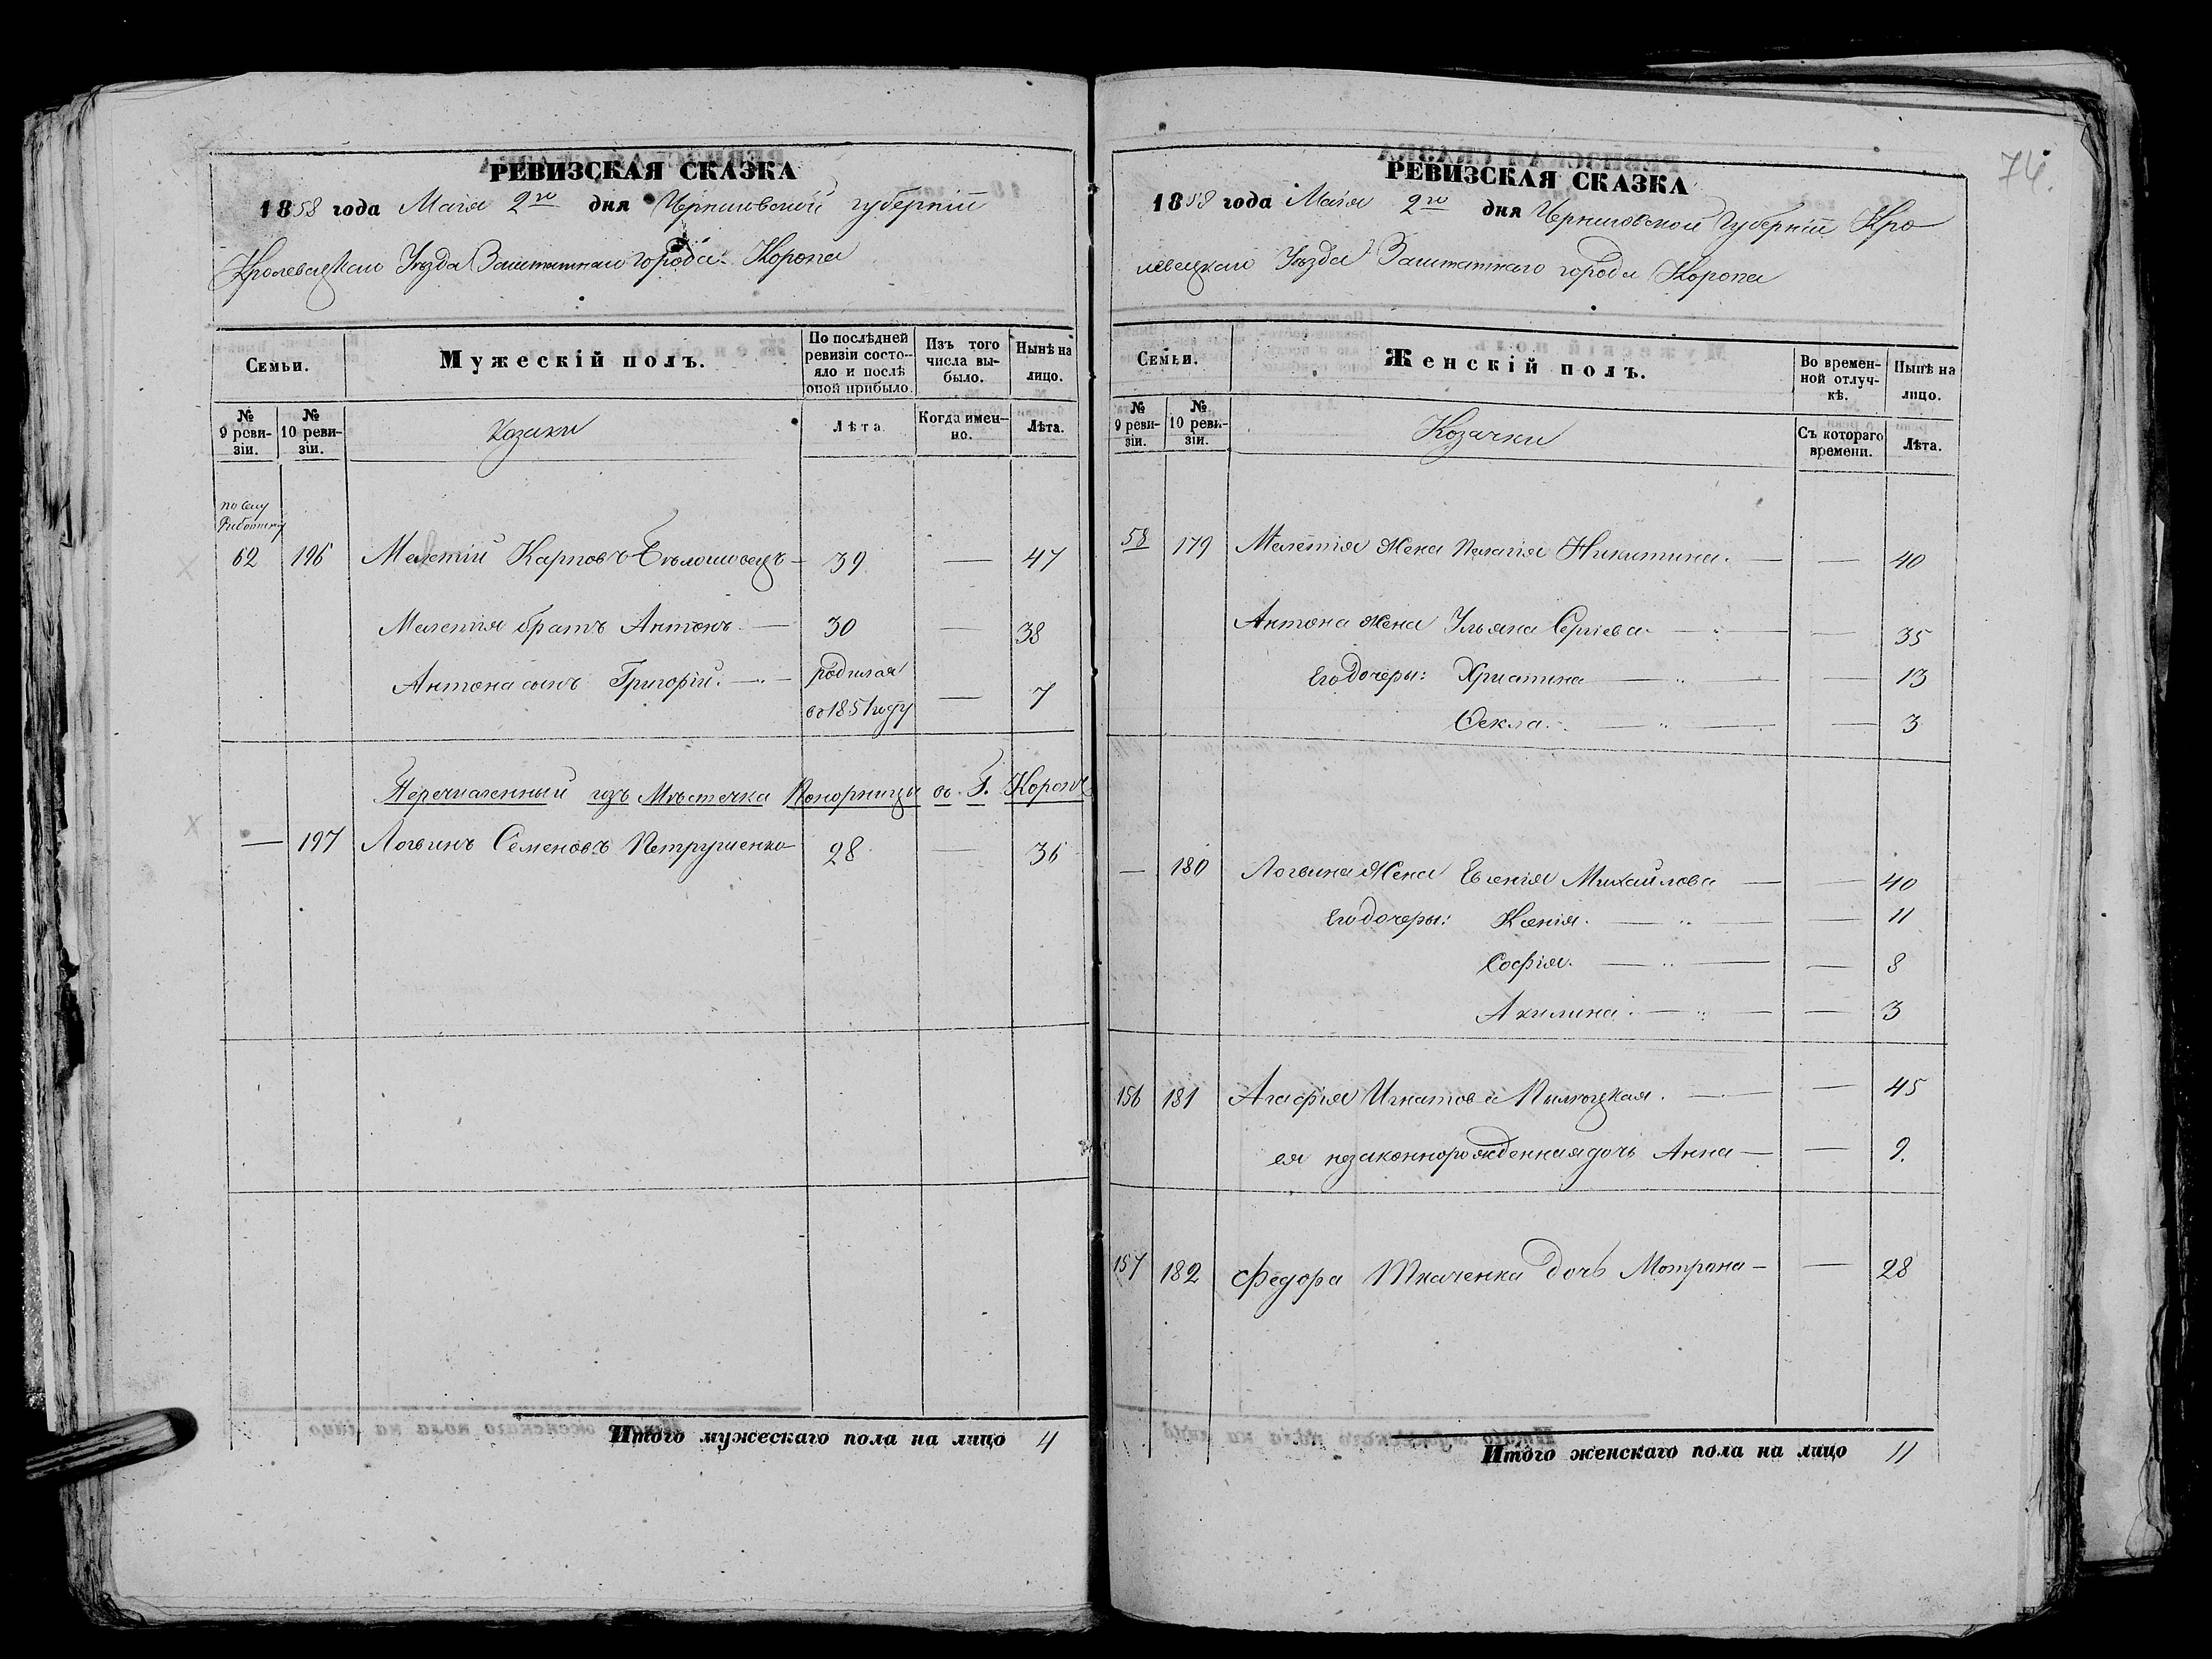 74.
РЕВИЗСКАЯ СКАЗКА
1858 года Маія 2го дня Черниговской губерніи
Кролевецкаго Уѣзда Заштатнаго города Коропа
Семьи.
Мужескій полъ.
По послѣдней ревизіи состояло и послѣ оной прибыло.
Изъ того числа выбыло.
Нынѣ на лицо.
№ 9 ревизіи.
№ 10 ревизіи.
Козаки
Лѣта
Когда именно.
Лѣта.
62 196 Мелетій Карповъ — 39 — 47
Мелетія братъ Антонъ. — 30 — 38
Антона сынъ Григорій. — родился въ 1851 году — 7
Перечисленный изъ Мѣстечка Понорницы въ Г. Коропъ
— 197 Логвинъ Семеновъ Петрушенко 28 — 36
Итого мужескаго пола на лицо 4
РЕВИЗСКАЯ СКАЗКА
1858 года Маія 2го дня Черниговской Губерніи Кро
левецкаго Уѣзда Заштатнаго города Коропа
Семьи.
Женскій полъ.
Во временной отлучкѣ.
Нынѣ на лицо.
№ 9 ревизіи.
№ 10 ревизіи.
Козачки
Съ котораго времени.
Лѣта.
58 179 Мелетія Жена Пелагія Никитина. — — 40
Антона Жена Ульяна Сергіева. — — 35
Его дочеры: Христина — — 13
Фекла. — — 3
— 180 Логвина Жена Евгенія Михайлова — — 40
Его дочеры: Ксенія. — — 11
Софія. — — 8
Акилина. — — 3
156 181 Агафія Игнатова — — 45
ея незаконнорожденная дочь Анна — — 9.
157 182 Федора Ткаченка дочь Мотрона — — 28
Итого женскаго пола на лицо 11